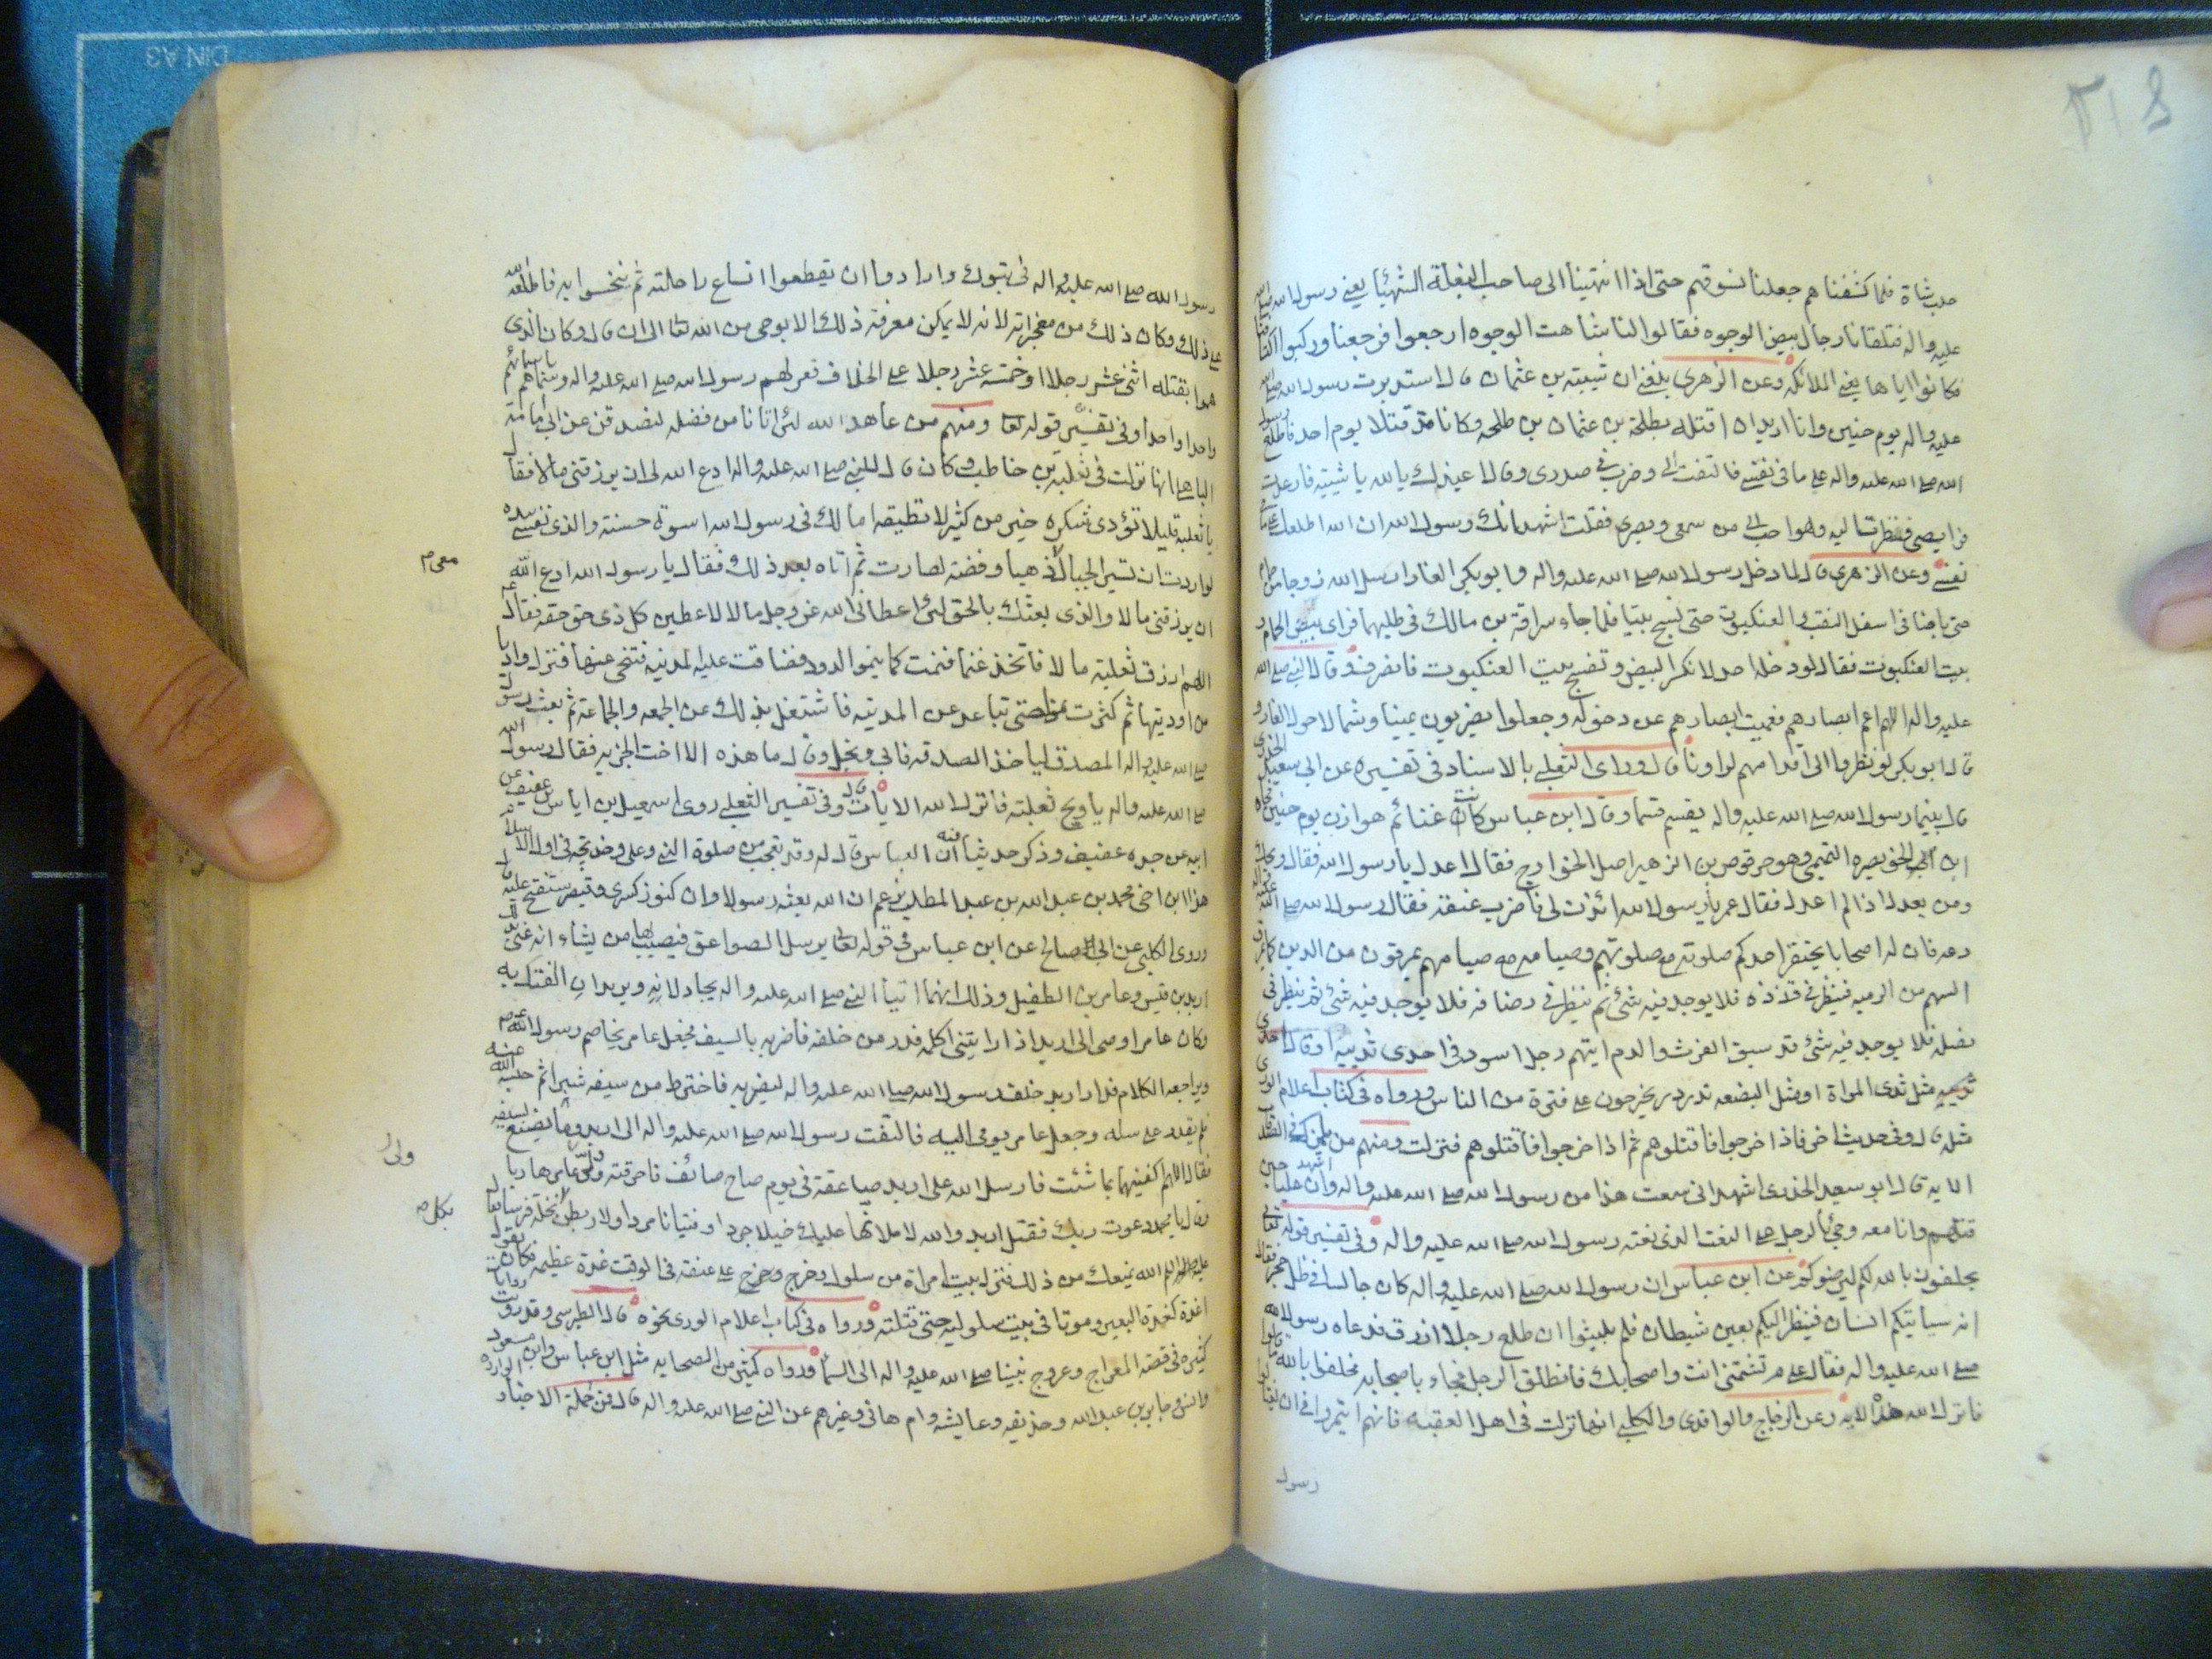 حلب شاة فلما كشفناهم جعلنا نسوقهم حتى اذا انتهينا الى صاحب البغلة الشهباء يعنى رسول الله صلى الله
عليه واله فتلقانا رجال بيض الوجوه فقالوا لنا شاهت الوجوه ارجعوا فرجعنا وركبوا اكتافنا
فكانوا اياها يعنى الملائكة وعن الزهرى بلغنى ان شيبة بن عثمان قال استدبرت رسول الله صلى الله
عليه واله يوم حنين وانا اريد ان اقتله بطلحة بن عثمان بن طلحه وكانا قد قتلا يوم احد فاطلع رسول
الله صلى الله عليه واله على ما فى نفسى فالتفت الى وضرب فى صدرى وقال اعيذك بالله يا شيبة فارعدت
فرايصى فنظرت اليه وهو احب الى من سمعى وبصرى فقلت اشهد انك رسول الله ان الله اطلعك على ما
نفسى وعن الزهرى قال لما دخل رسول الله صلى الله عليه واله وابو بكر الغار ارسل الله زوجا من حمام
حتى باضا فى اسفل النقب والعنكبوت حتى نسج بيتا فلما جاء سراقة بن مالك فى طلبهما فراى بيض الحمام و
بيت العنكبوت فقال لو دخله احد لانكسر البيض وتفسخ بيت العنكبوت فانصرف وقال النبى صلى الله
عليه واله اللهم اعم ابصارهم فعميت ابصارهم عن دخوله وجعلوا يضربون يمينا وشمالا حول الغار و
قال ابو بكر لو نظروا الى اقدامهم لراونا قال وراى الثعلبى بالاسناد فى تفسيره عن ابى سعيد الخدرى
قال بينما رسول الله صلى الله عليه واله يقسم قسما وقال ابن عباس كانت غنائم هوازن يوم حنين جاه
ابن ابى الخويصره التميمى وهو حرقوص بن الزهير اصل الخوارج فقال اعدل يا رسول الله فقال ويلك
ومن يعدل اذا لم اعدل فقال عمر يا رسول الله ائذن لى فاضرب عنقه فقال رسول الله صلى الله عليه واله
دعه فان له اصحابا يحتقر احدكم صلوته مع صلوتهم وصيامه مع صيامهم يمرقون من الدين كما يمرق
السهم من الرميه فينظر فى قذذه فلا يوجد فيه شئ ثم ينظر فى رضافه فلا يوجد فيه شئ ثم ينظر فى
نصله فلا يوجد فيه شئ قد سبق الفرث والدم ايتهم رجل اسود فى احدى ثدييه او قال احدى
ثدييه مثل ثدى المراة او مثل البضعه تدردر يخرجون على فترة من الناس ورواه فى كتاب اعلام الورى
مثله قال وفى حديث اخر فاذا خرجوا فاقتلوهم ثم اذا خرجوا فاقتلوهم فنزلت ومنهم من يلمزك فى الصدقات
الايه قال ابو سعيد الخدرى اشهد انى سمعت هذا من رسول الله صلى الله عليه واله واشهد ان عليا حين
قتلهم وانا معه وجئ بالرجل على النعت الذى نعته رسول الله صلى الله عليه واله وفى تفسير قوله تعالى
يحلفون بالله لكم ليرضوكم عن ابن عباس ان رسول الله صلى الله عليه واله كان جالسا فى ظل حجر فقال
انه سياتيكم انسان فينظر اليكم بعين شيطان فلم يلبثوا ان طلع رجل ازرق فدعاه رسول الله
صلى الله عليه واله فقال على م تشتمنى انت واصحابك فانطلق الرجل فجاء باصحابه فحلفوا بالله ما قالوا
فانزل الله هذه الايه وعن الزجاج والواقدى والكلبى انها نزلت فى اهل العقبه فانهم ائتمروا فى ان يغتالوا
رسول
رسول الله صلى الله عليه واله فى تبوك وارادوا ان يقطعوا انساع راحلته ثم ينخسوا به فاطلعه الله
على ذلك وكان ذلك من معجزاته لانه لا يمكن معرفة ذلك الا بوحى من الله تعالى الى ان قال وكان الذى
هموا بقتله اثنى عشر رجلا او خمسة عشر رجلا على الخلاف فعرفهم رسول الله صلى الله عليه واله وسماهم باسمائهم
واحدا واحدا وفى تفسير قوله تعالى ومنهم من عاهد الله لئن اتانا من فضله لنصدقن عن ابى امامة
الباهلى انها نزلت فى ثعلبة بن خاطب وكان قال للنبى صلى الله عليه واله ادع الله لى ان يرزقنى مالا فقال
يا ثعلبة قليل تؤدى شكره خير من كثير لا تطيقه اما لك فى رسول الله اسوة حسنة والذى نفسى بيده
لو اردت ان تسير الجبال ذهبا وفضة لصارت ثم اتاه بعد ذلك فقال يا رسول الله ادع الله
معى م
ان يرزقنى مالا والذى بعثك بالحق لئن اعطانى الله عز وجل مالا لاعطين كل ذى حق حقه فقال
اللهم ارزق ثعلبة مالا فاتخذ غنما فنمت كما ينمو الدود فضاقت عليه المدينه فتنحى عنها فنزل واديا
من اوديتها ثم كثرت حتى تباعد عن المدينه فاشتغل بذلك عن الجمعه والجماعة ثم بعث رسول
صلى الله عليه واله المصدق لياخذ الصدقه فابى وبخل وقال ما هذه الا اخت الجزيه فقال رسول الله
صلى الله عليه واله يا ويح ثعلبة فانزل الله الايات قال وفى تفسير الثعلبى روى اسمعيل بن اياس بن عفيف عن
ابيه عن جده عفيف وذكر حديثا فيه ان العباس قال له وقد تعجب من صلوة النبى وعلى وخديجة فى اول الاسلام
هذا ابن اخى محمد بن عبد الله بن عبد المطلب يزعم ان الله بعثه رسولا وان كنوز كسرى وقيصر ستفتح عليه
وروى الكلبى عن ابى صالح عن ابن عباس فى قوله تعالى يرسل الصواعق فيصيب بها من يشاء انه عنى
اربد بن قيس وعامر بن الطفيل وذلك انهما اتيا النبى صلى الله عليه واله يجادلانه ويريدان الفتك به
وكان عامر اوصى الى اربد اذا رايتنى اكلمه فدر من خلفه فاضربه بالسيف فجعل عامر يخاصم رسول الله
ويراجعه الكلام فدار اربد خلف رسول الله صلى الله عليه واله ليضربه فاخترط من سيفه شبرا ثم حبسه الله عنه
فلم يقدر على سله وجعل عامر يومى اليه فالتفت رسول الله صلى الله عليه واله الى اربد وما يصنع بسيفه
ولى ر
فقال اللهم اكفنيهما بما شئت فارسل الله على اربد صاعقة فى يوم صاح صائف فاحرقته وولى عامر هاربا
بكل ص
وقال يا محمد دعوت ربك فقتل اربد والله لاملانها عليك خيلا جردا وفتيانا مردا ولاربطن بكل نخلة فرسا فقال
عليه السلام الله يمنعك من ذلك فنزل بيت امراة من سلول وخرج وخرج على عنقه فى الوقت غدة عظيمه فكان يقول
اغدة كغدة البعير وموتا فى بيت سلولية حتى قتلته ورواه فى كتاب اعلام الورى نحوه قال الطبرسى وقد روت روايات
كثيره فى قصة المعراج وعروج نبينا صلى الله عليه واله الى السما ورواه كثير من الصحابه مثل ابن عباس وابن مسعود
وانس وجابر بن عبد الله وحذيفه وعايشه وام هانى وغيرهم عن النبى صلى الله عليه واله قال فمن جملة الاخبار الوارده